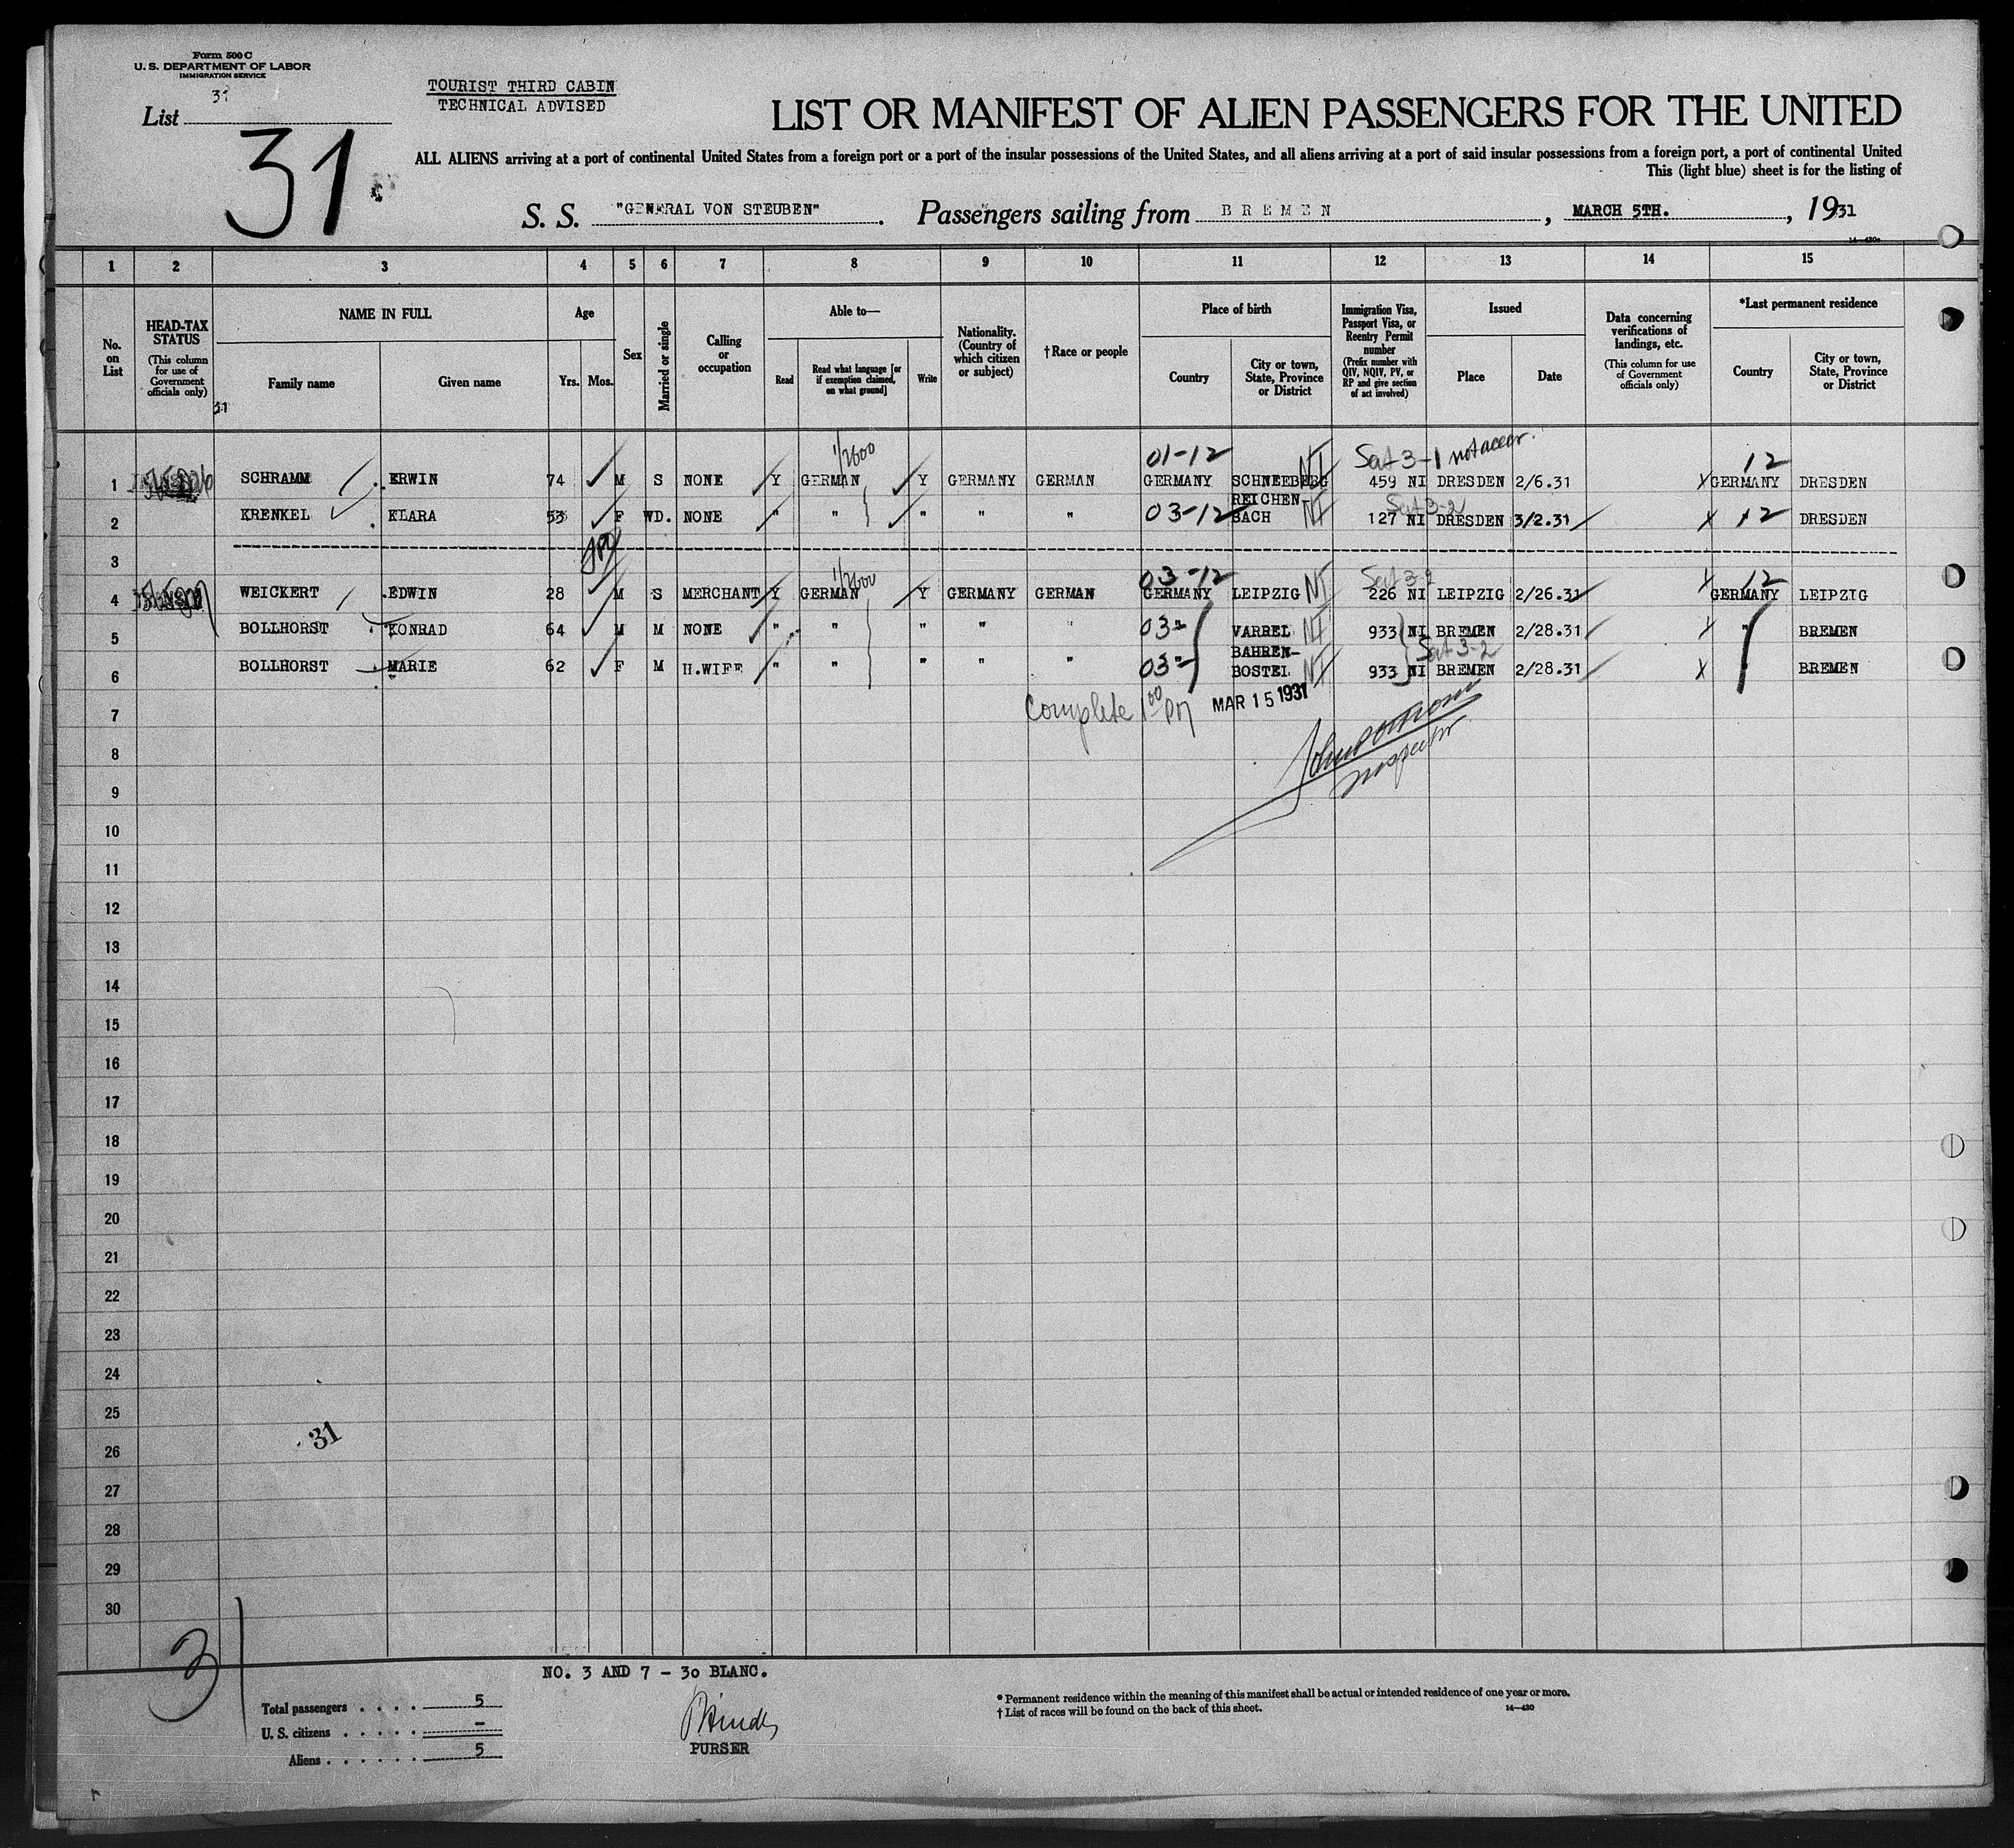 Form 500 C
U. S. DEPARTMENT OF LABOR
IMMIGRATION SERVICE
List
31
TOURIST THIRD CABIN
TECHNICAL ADVISED
LIST OR MANIFEST OF ALIEN PASSENGERS FOR THE UNITED
ALL ALIENS arriving at a port of continental United States from a foreign port or a port of the insular possessions of the United States, and all aliens arriving at a port of said insular possessions from a foreign port, a port of continental United
This (light blue) sheet is for the listing of
S. S. "GENERAL VON STEUBEN". Passengers sailing from BREMEN, MARCH 5TH., 1931
1 2 3 4 5 6 7 8 9 10 11 12 13 14 15
No. on List
HEAD-TAX STATUS
(This column for use of Government officials only)
NAME IN FULL
Family name
Given name
Age
Yrs. Mos.
Sex
Married or single
Calling or occupation
Able to—
Read
Read what language [or if exemption claimed, on what ground]
Write
Nationality. (Country of which citizen or subject)
†Race or people
Place of birth
Country
City or town, State, Province or District
Immigration Visa, Passport Visa, or Reentry Permit number
(Prefix number with QIV, NQIV, PV, or RP and give section of act involved)
Issued
Place
Date
Data concerning verifications of landings, etc.
(This column for use of Government officials only)
*Last permanent residence
Country
City or town, State, Province or District
01-12 Sat 3-1 12
1 SCHRAMM ERWIN 74 M S NONE Y GERMAN Y GERMANY GERMAN GERMANY SCHNEEBERG 459 NI DRESDEN 2/6.31 GERMANY DRESDEN
2 KRENKEL KLARA 53 F WD. NONE " " " " " 03-12 REICHEN-BACH 127 NI DRESDEN 3/2.31 12 DRESDEN
3
03-12 Sat 3-2 12
4 WEICKERT EDWIN 28 M S MERCHANT Y GERMAN Y GERMANY GERMAN GERMANY LEIPZIG 226 NI LEIPZIG 2/26.31 GERMANY LEIPZIG
5 BOLLHORST KONRAD 64 M M NONE " " " " " 03 " VARREL 933 NI BREMEN 2/28.31 " BREMEN
6 BOLLHORST MARIE 62 F M H.WIFE " " " " " 03 " BAHREN-BOSTEL 933 NI BREMEN 2/28.31 BREMEN
Sat 3-2
7 Complete 1 00 PM MAR 15 1931
8
Inspector
9
10
11
12
13
14
15
16
17
18
19
20
21
22
23
24
25
31
26
27
28
29
30
31
NO. 3 AND 7 - 30 BLANC.
Total passengers . . . . 5
U. S. citizens . . . . . –
Aliens . . . . . . 5
PURSER
* Permanent residence within the meaning of this manifest shall be actual or intended residence of one year or more.
† List of races will be found on the back of this sheet.
14—430